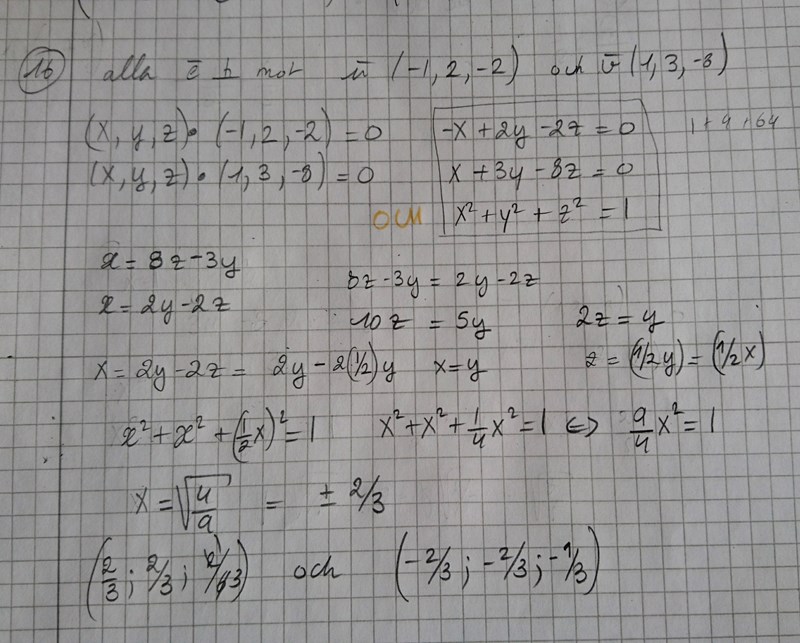 16 alla ē ⊥ mot ū (-1, 2, -2) och v̄ (1, 3, -8)
(x, y, z) • (-1, 2, -2) = 0 -x + 2y - 2z = 0 1 + 9 + 64
(x, y, z) • (1, 3, -8) = 0 x + 3y - 8z = 0
OCH x² + y² + z² = 1
x = 8z - 3y
8z - 3y = 2y - 2z
x = 2y - 2z
10z = 5y 2z = y
x = 2y - 2z = 2y - 2(1/2)y x = y z = (1/2 y) = (1/2 x)
x² + x² + (1/2 x)² = 1 x² + x² + 1/4 x² = 1 ⇔ 9/4 x² = 1
x = √(4/9) = ± 2/3
(2/3 ; 2/3 ; 3) och (-2/3 ; -2/3 ; -1/3)